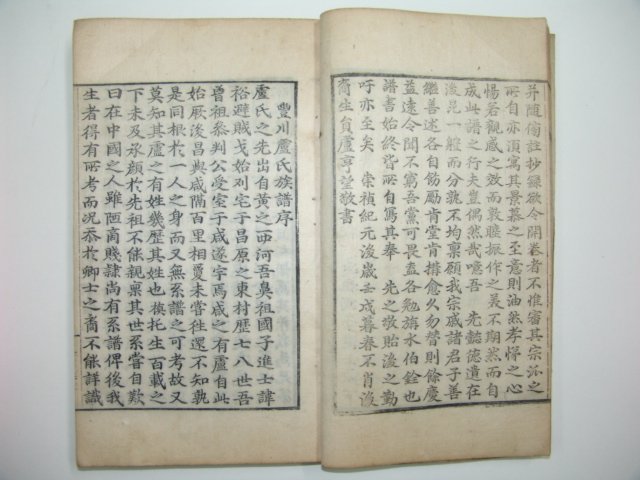 并随傷註抄錄俾令開卷者不惟審其宗派之
所自亦須寫其景慕之至意則油然孝悌之心
惕若觀感之效而敦睦振作之美不期然而自
成此譜之行夫豈偶然哉噫吾 先懿德遺在
後昆一體而分孰不均禀顧我宗戚諸君子善
繼善述各自飭勵肯堂肯構愈久勿替則餘慶
益遠令聞不寫吾黨可畏盍各勉旃水伯銓也
譜書始終皆所自寫其奉 先之敬貽後之勤
吁亦至矣 崇禎紀元後歲壬戌暮春不肖後
裔生員盧亨望敬書
豐川盧氏族譜序
盧氏之先出自黃之西河吾鼻祖國子進士諱
裕避賊戈始列宅于昌原之東村歷七八世吾
曾祖叅判公受室于咸遂字焉咸之有盧自此
始厥後昌與咸隔百里相夐未嘗往還不知孰
是同根於一人之身而又無系譜之可考故又
莫知其盧之有姓幾歷其姓也俟托生百載之
下未及承顔於先祖不能親禀其世系嘗自歎
曰在中國之人雖陋商賤隸尚有系譜俾後我
生者得有所考而况忝於卿士之裔不能詳識